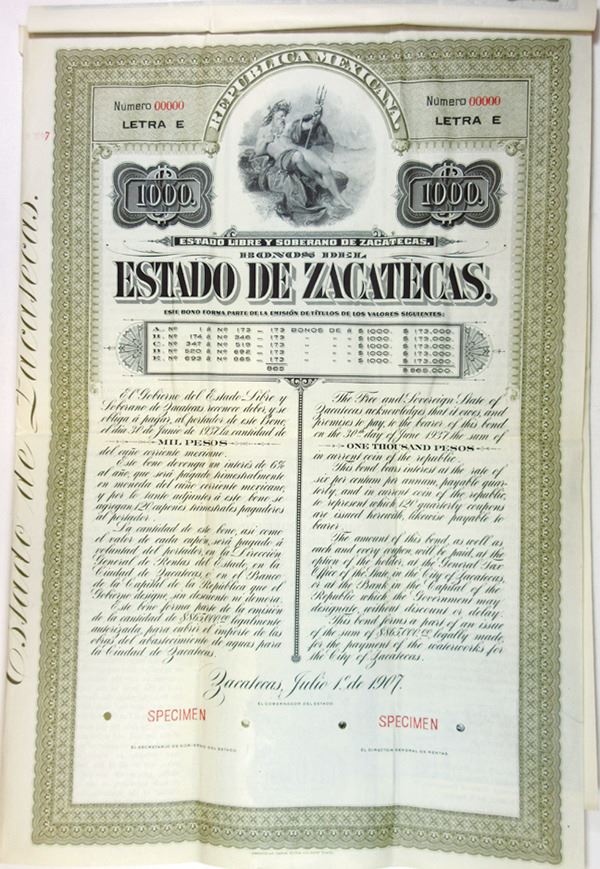 REPÚBLICA MEXICANA.
Número 00000
LETRA E
Número 00000
LETRA E
$ 1000.
$ 1000.
ESTADO LIBRE Y SOBERANO DE ZACATECAS.
BONOS DEL
ESTADO DE ZACATECAS.
ESTE BONO FORMA PARTE DE LA EMISIÓN DE TÍTULOS DE LOS VALORES SIGUIENTES:
A. Nº 1 á Nº 173 — 173 BONOS DE Á $ 1000. $ 173.000.
B. Nº 174 á Nº 346 — 173 " " " $ 1000. $ 173.000.
C. Nº 347 á Nº 519 — 173 " " " $ 1000. $ 173.000.
D. Nº 520 á Nº 692 — 173 " " " $ 1000. $ 173.000.
E. Nº 693 á Nº 865 — 173 " " " $ 1000. $ 173.000.
865 $ 865.000.
El Gobierno del Estado Libre y
Soberano de Zacatecas reconoce deber, y se
obliga á pagar, al portador de este Bono,
el día 30 de Junio de 1937 la cantidad de
MIL PESOS
del cuño corriente mexicano.
Este bono devenga un interés de 6%
al año, que será pagado trimestralmente
en moneda del cuño corriente mexicano
y por lo tanto adjuntos á este bono se
agregan 120 cupones trimestrales pagaderos
al portador.
La cantidad de este bono, así como
el valor de cada cupón, será pagado á
voluntad del portador, en la Dirección
General de Rentas del Estado, en la
Ciudad de Zacatecas, o en el Banco
de la Capital de la República que el
Gobierno designe, sin descuento ni demora.
Este bono forma parte de la emisión
de la cantidad de $865,000.00 legalmente
autorizada, para cubrir el importe de las
obras del abastecimiento de aguas para
la Ciudad de Zacatecas.
The Free and Sovereign State of
Zacatecas acknowledges that it owes, and
promises to pay, to the bearer of this bond
on the 30th day of June 1937 the sum of
ONE THOUSAND PESOS
in current coin of the republic.
This bond bears interest at the rate of
six per centum per annum, payable quar-
terly, and in current coin of the republic,
to represent which 120 quarterly coupons
are issued herewith, likewise payable to
bearer.
The amount of this bond, as well as
each and every coupon, will be paid, at the
option of the holder, at the General Tax
Office of the State, in the City of Zacatecas,
or at the Bank in the Capital of the
Republic which the Government may
designate, without discount or delay.
This bond forms a part of an issue
of the sum of $865,000.00 legally made
for the payment of the waterworks for
the City of Zacatecas.
Zacatecas, Julio 1º de 1907.
EL GOBERNADOR DEL ESTADO
SPECIMEN
SPECIMEN
EL SECRETARIO DE GOBIERNO DEL ESTADO
EL DIRECTOR GENERAL DE RENTAS.
Estado de Zacatecas.